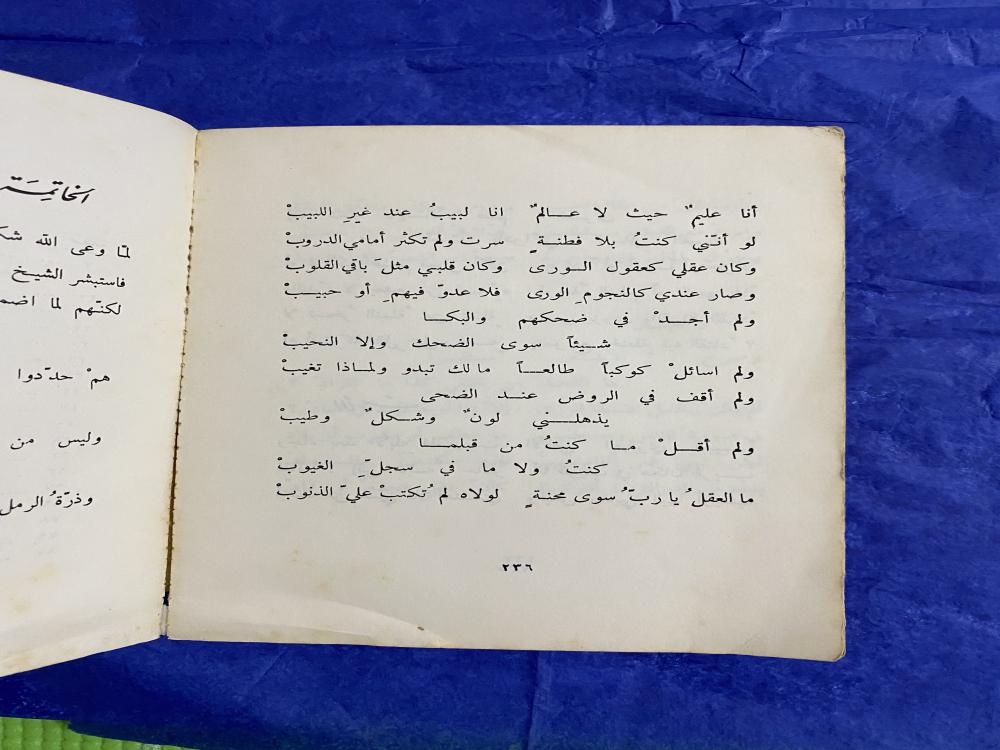 أنا عليمٌ حيث لا عـــالمٌ انا لبيبُ عند غيرِ اللبيبْ
لو أنّني كنتُ بلا فطنـةٍ سرت ولم تكثر أمامي الدروبْ
وكان عقلي كعقول الـورى وكان قلبي مثلَ باقي القلوبْ
وصار عندي كالنجومِ الورى فلا عدوّ فيهمِ أو حبيبْ
ولم أجدْ في ضحكهم والبكا
شيئاً سوى الضحك وإلا النحيبْ
ولم اسائلْ كوكباً طالعاً ما لك تبدو ولماذا تغيبْ
ولم أقف في الروض عند الضحى
يذهلني لونٌ وشكلٌ وطيبْ
ولم أقلْ ما كنتُ من قبلما
كنتُ ولا ما في سجلِّ الغيوبْ
ما العقلُ يا ربُّ سوى محنةٍ لولاه لم تُكتبْ عليّ الذنوبْ
٢٣٦
الخاتِمَة
لمّا وعى الله
فاستبشر الشيخ
لكنّهم لما
همْ حدّدوا
وليس من
وذرّةُ الرمل